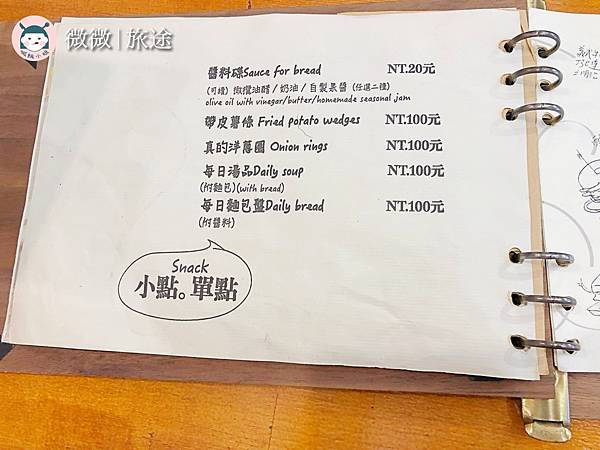 微微|旅途
醬料碟Sauce for bread NT.20元
(可續) 橄欖油醋/奶油/自製果醬 (任選二種)
olive oil with vinegar/butter/homemade seasonal jam
帶皮薯條 Fried potato wedges NT.100元
真的洋蔥圈 Onion rings NT.100元
每日湯品Daily soup NT.100元
(附麵包)(with bread)
每日麵包盤Daily bread NT.100元
(附醬料)
Snack
小點。單點